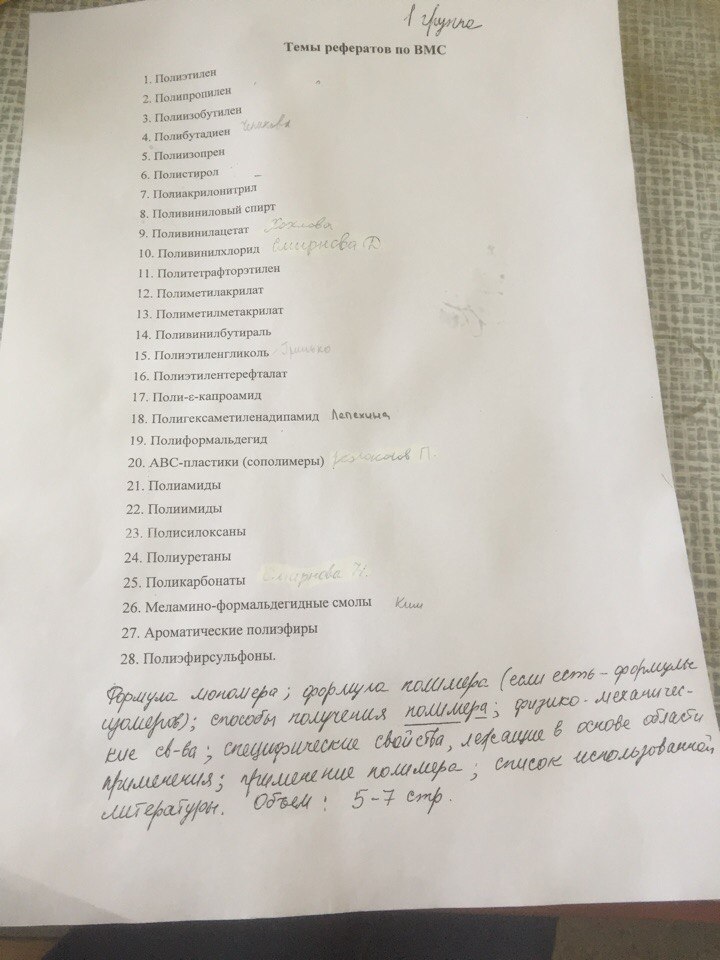 1 группа
Темы рефератов по ВМС
1. Полиэтилен
2. Полипропилен
3. Полиизобутилен
4. Полибутадиен
5. Полиизопрен
6. Полистирол
7. Полиакрилонитрил
8. Поливиниловый спирт
9. Поливинилацетат Хохлова
10. Поливинилхлорид Смирнова Д
11. Политетрафторэтилен
12. Полиметилакрилат
13. Полиметилметакрилат
14. Поливинилбутираль
15. Полиэтиленгликоль
16. Полиэтилентерефталат
17. Поли-ε-капроамид
18. Полигексаметиленадипамид Лапехина
19. Полиформальдегид
20. АВС-пластики (сополимеры) П.
21. Полиамиды
22. Полиимиды
23. Полисилоксаны
24. Полиуретаны
25. Поликарбонаты Смирнова Н.
26. Меламино-формальдегидные смолы Ким
27. Ароматические полиэфиры
28. Полиэфирсульфоны.
Формула мономера; формула полимера (если есть - формулы
изомеров); способы получения полимера; физико-механичес-
кие св-ва; специфические свойства, лежащие в основе области
применения; применение полимера; список использованной
литературы. Объем: 5-7 стр.